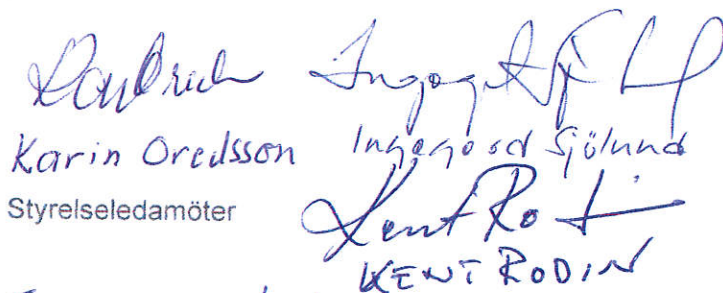 Karin Oredsson Ingegerd Sjölund
Styrelseledamöter
Kent Rodin
KENT RODIN